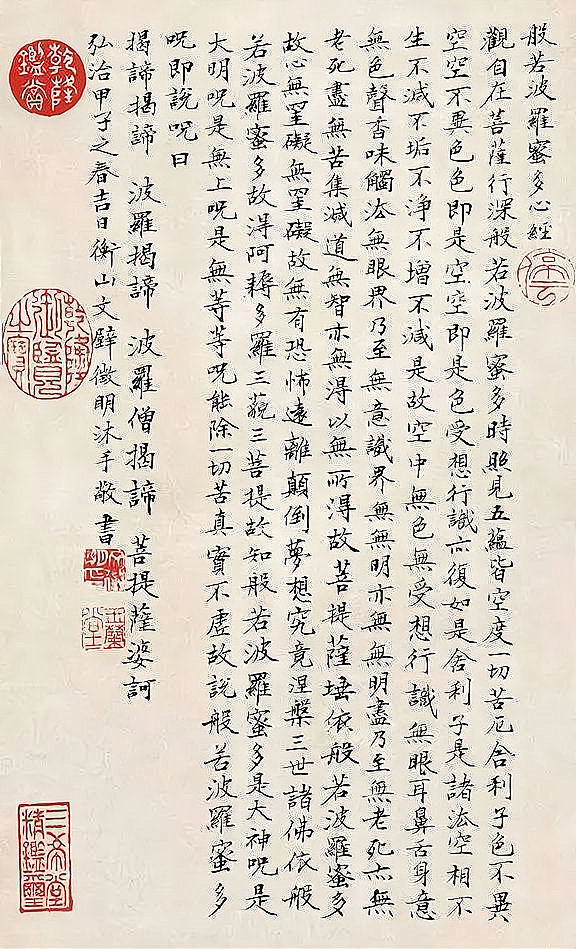 般若波羅蜜多心經
觀自在菩薩行深般若波羅蜜多時照見五蘊皆空度一切苦厄舍利子色不異
空空不異色色即是空空即是色受想行識亦復如是舍利子是諸法空相不
生不滅不垢不淨不增不減是故空中無色無受想行識無眼耳鼻舌身意
無色聲香味觸法無眼界乃至無意識界無無明亦無無明盡乃至無老死亦無
老死盡無苦集滅道無智亦無得以無所得故菩提薩埵依般若波羅蜜多
故心無罣礙無罣礙故無有恐怖遠離顛倒夢想究竟涅槃三世諸佛依般
若波羅蜜多故得阿耨多羅三藐三菩提故知般若波羅蜜多是大神呪是
大明呪是無上呪是無等等呪能除一切苦真實不虛故說般若波羅蜜多
呪即說呪曰
揭諦揭諦 波羅揭諦 波羅僧揭諦 菩提薩婆訶
弘治甲子之春吉日衡山文壁徵明沐手敬書
玉蘭堂
乾隆鑑賞
乾隆御覽之寶
三希堂精鑑璽